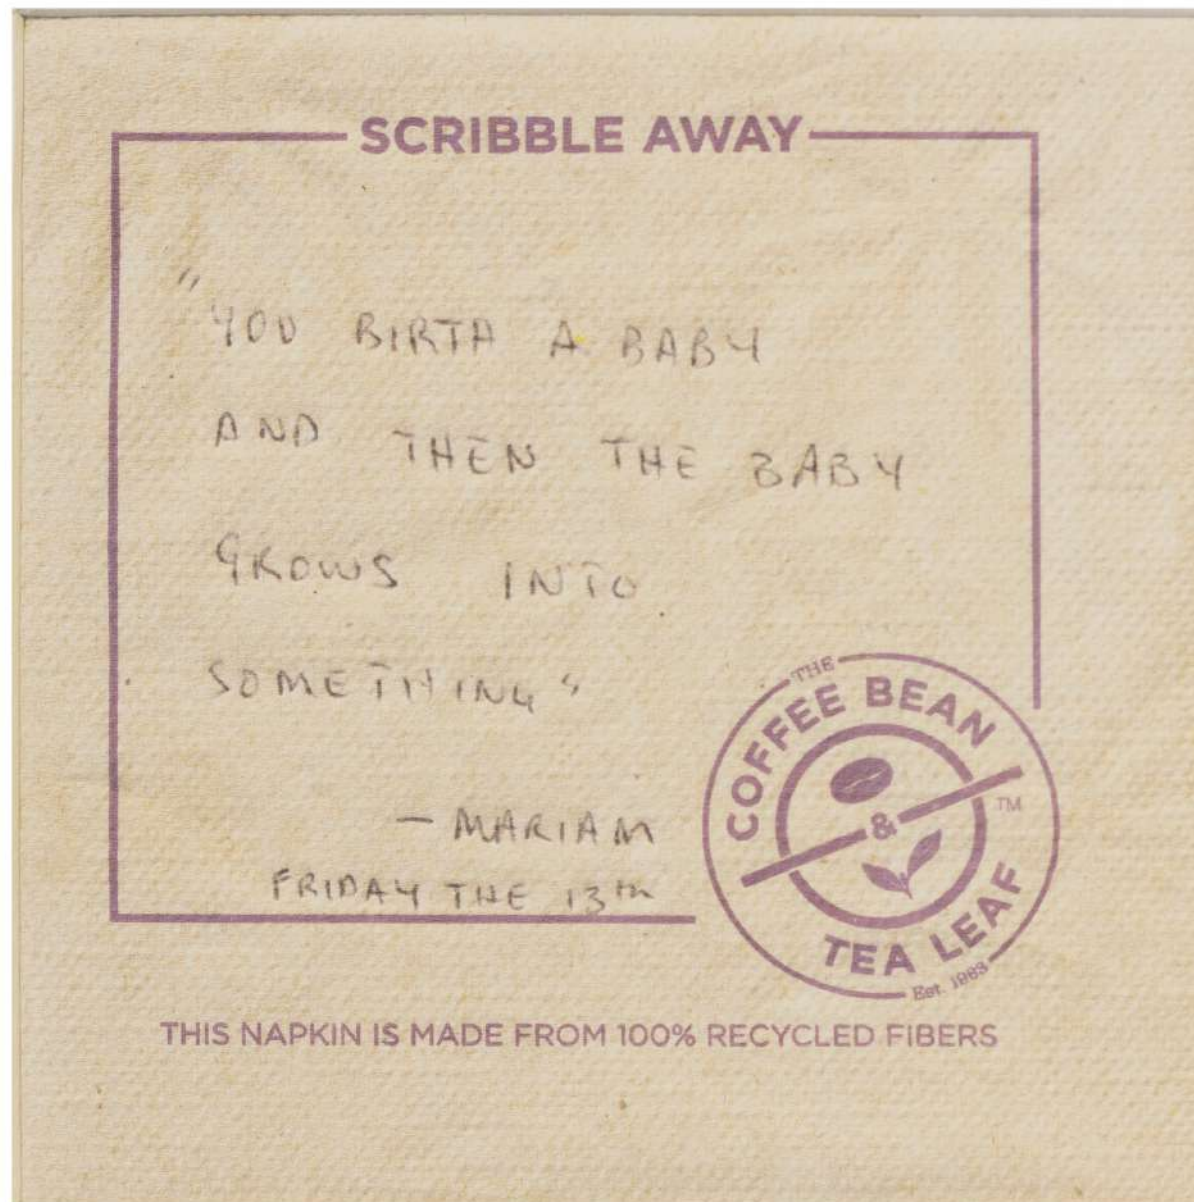 SCRIBBLE AWAY
"YOU BIRTH A BABY
AND THEN THE BABY
GROWS INTO
SOMETHING"
— MARIAM
FRIDAY THE 13th
THE
COFFEE BEAN
&
TM
TEA LEAF
Est. 1963
THIS NAPKIN IS MADE FROM 100% RECYCLED FIBERS